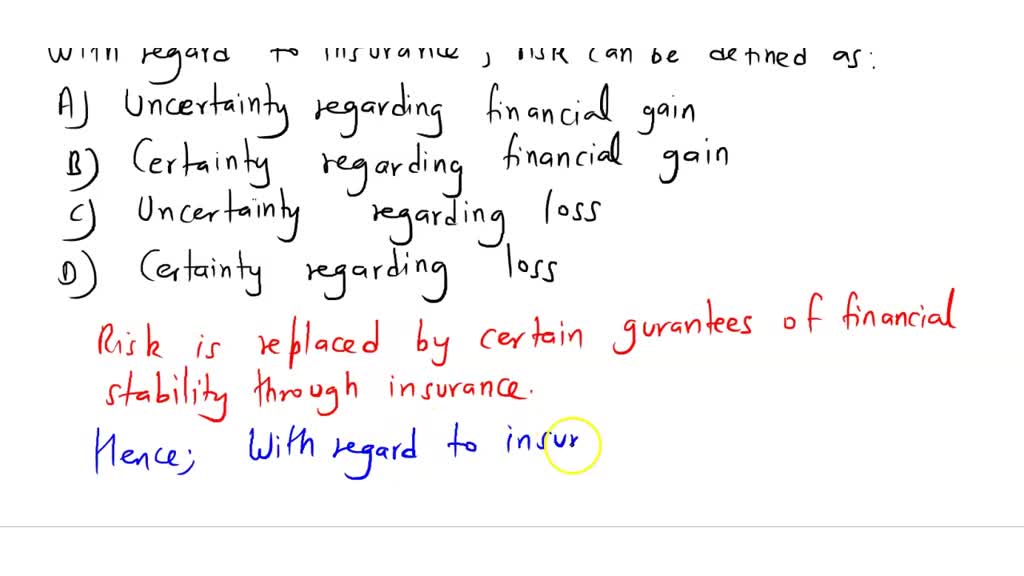 With regard to insurance, risk can be defined as:
A) Uncertainty regarding financial gain
B) Certainty regarding financial gain
C) Uncertainty regarding loss
D) Certainty regarding loss
Risk is replaced by certain gurantees of financial
stability through insurance.
Hence; With regard to insur